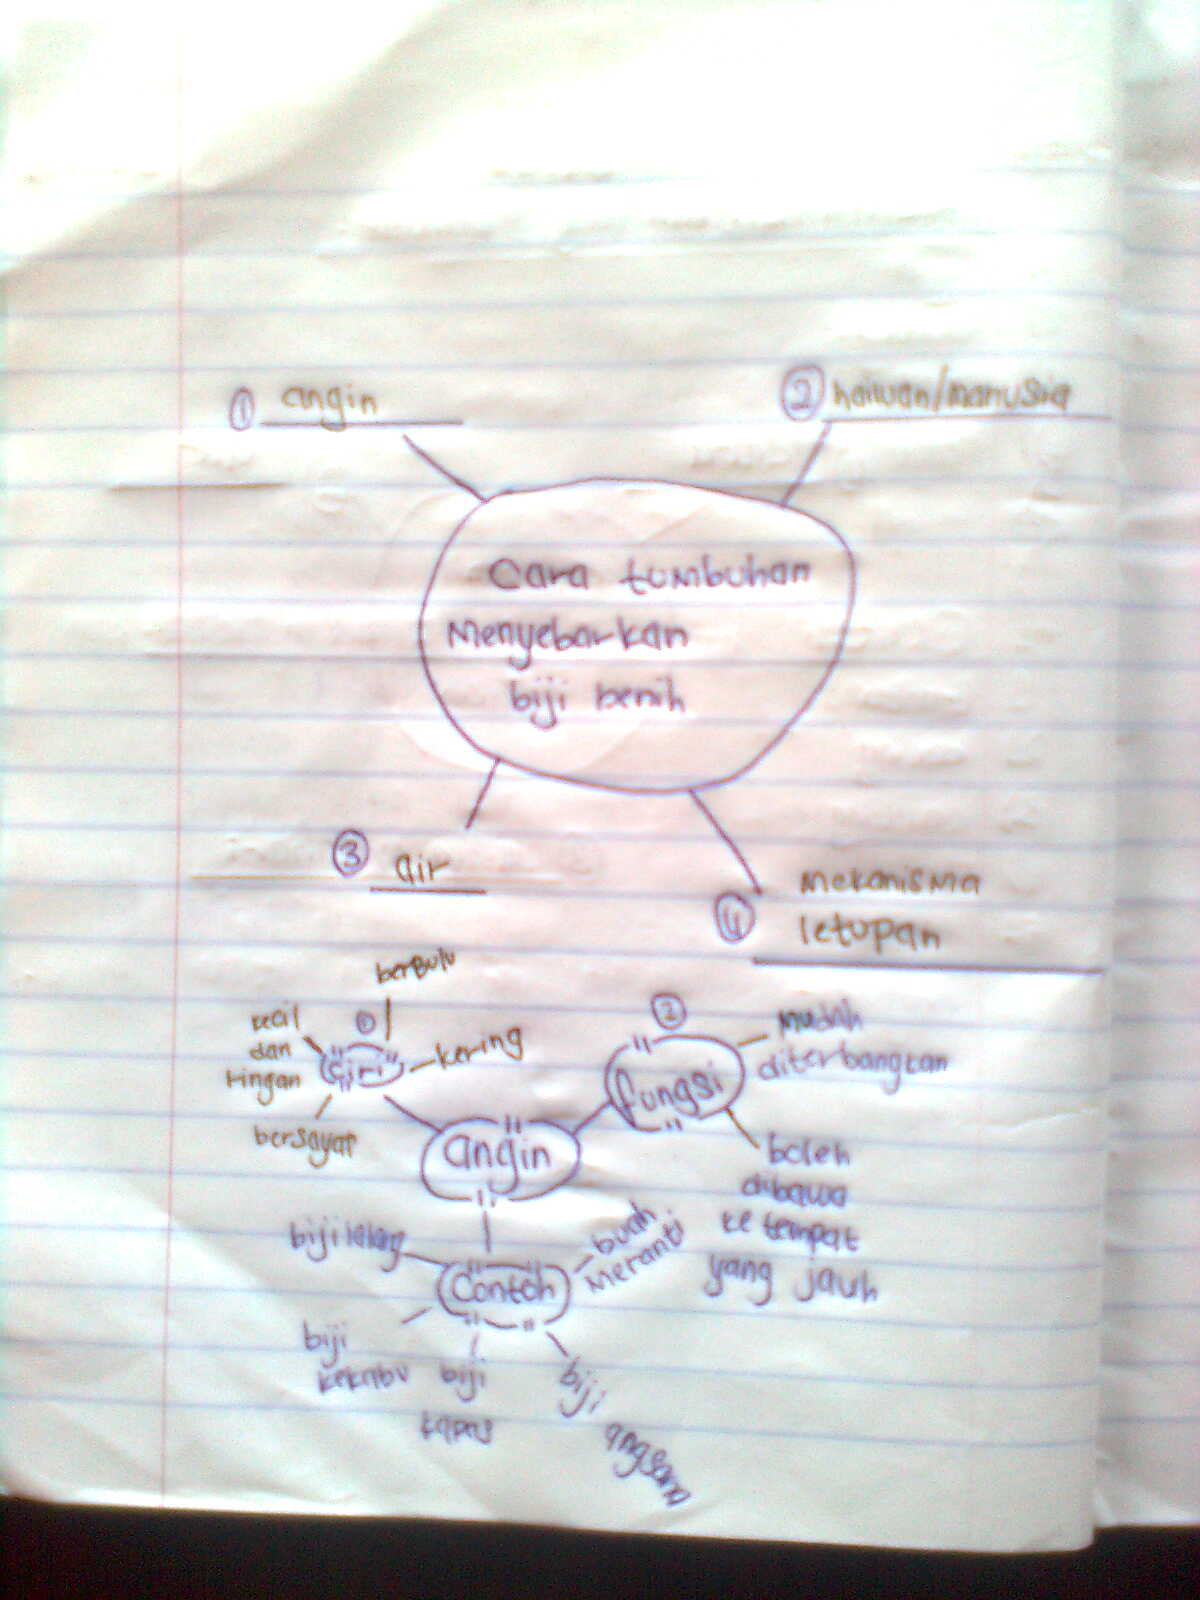 ① angin
② haiwan/manusia
Cara tumbuhan
Menyebarkan
biji benih
③ air
④ mekanisma
letupan
berbulu
kecil
dan
ringan
①
ciri
kering
bersayap
②
fungsi
mudah
diterbangkan
boleh
dibawa
ke tempat
yang jauh
angin
biji lalang
Contoh
buah
Meranti
biji
kekabu
biji
kapas
biji
angsana